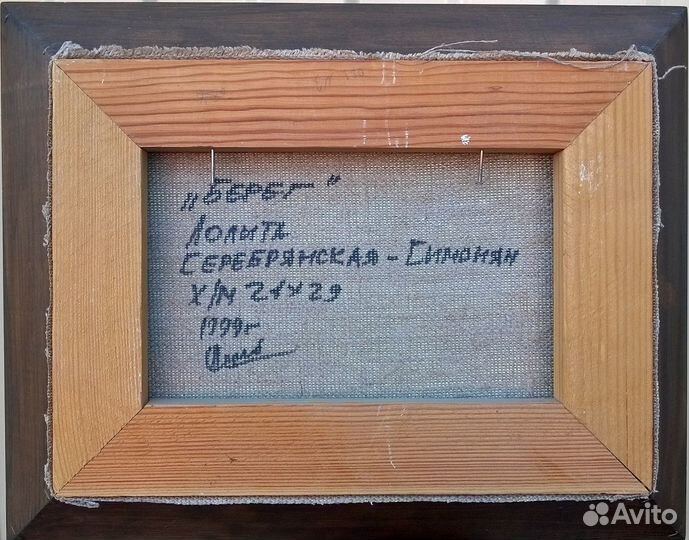 „БЕРЕГ"
ЛОЛИТА
СЕРЕБРЯНСКАЯ-СИМОНЯН
Х/М 21х29
1999г
Avito